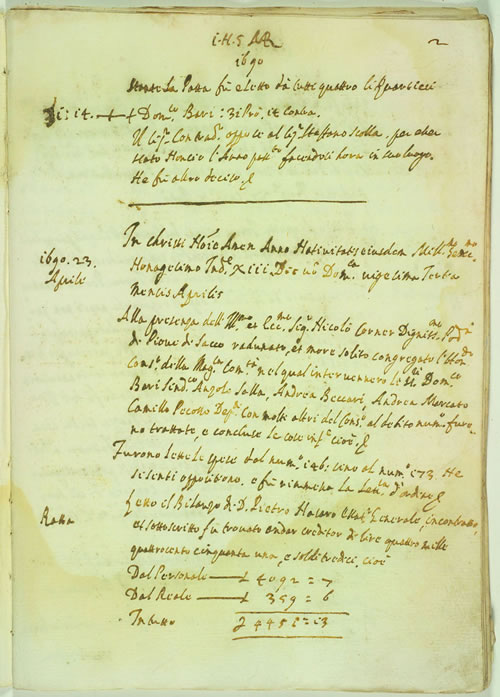 1690
2
Stante La Parta fù eletto da tutti quattro li
Dom.co Bari: 31 Prò, 14 contra.
Il Sig.r oppose al Sig.r Steffano per esser
stato l'Anno facendosi hora in suo luogo.
Ne fù altro deciso,
1690. 23.
Aprile
In christi Nõie Amen Anno Nativitatis eiusdem Mill.mo
Nonagesimo Ind. XIII. Die Dom.ca vigesima Tertia
Mensis Aprilis
Alla presenza dell' Ill.mo et Ecc.mo Sig.r Nicolò Corner Digniss.mo Pod.à
di Piove di Sacco radunato, et more solito congregato l'
Cons.o della Mag.ca Com.tà nel qual intervennero li Dom.co
Bari Sind.co Angolo Salla, Andrea Beccari, Andrea Mercato
Camillo Dep. con molti altri del Cons.o al debito num.o furo-
no trattate, e concluse le cose inf.e cioè
Furono lette le spese dal num.o 146: sino al num.o 173. Ne
si sentì opposizione, e fù rimessa la
Letto il Bilanzo di D. Pietro Generale, incontrato,
Ratta
et sottoscritto fù trovato andar creditor di lire quattro mille
quattrocento cinquanta una, e soldi tredici, cioè
Dal Personale — £ 4092 = 7
Dal Reale — £ 359 = 6
In tutto £ 4451 = 13